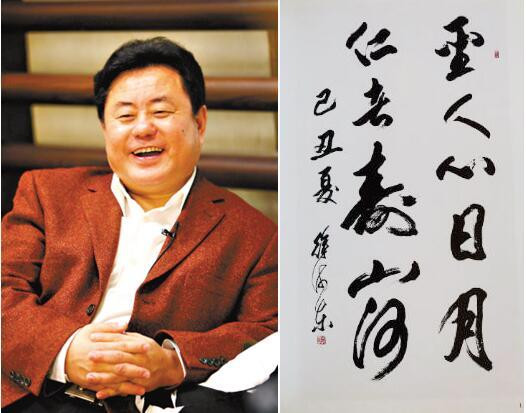 圣人心日月
仁者寿山河
己丑夏